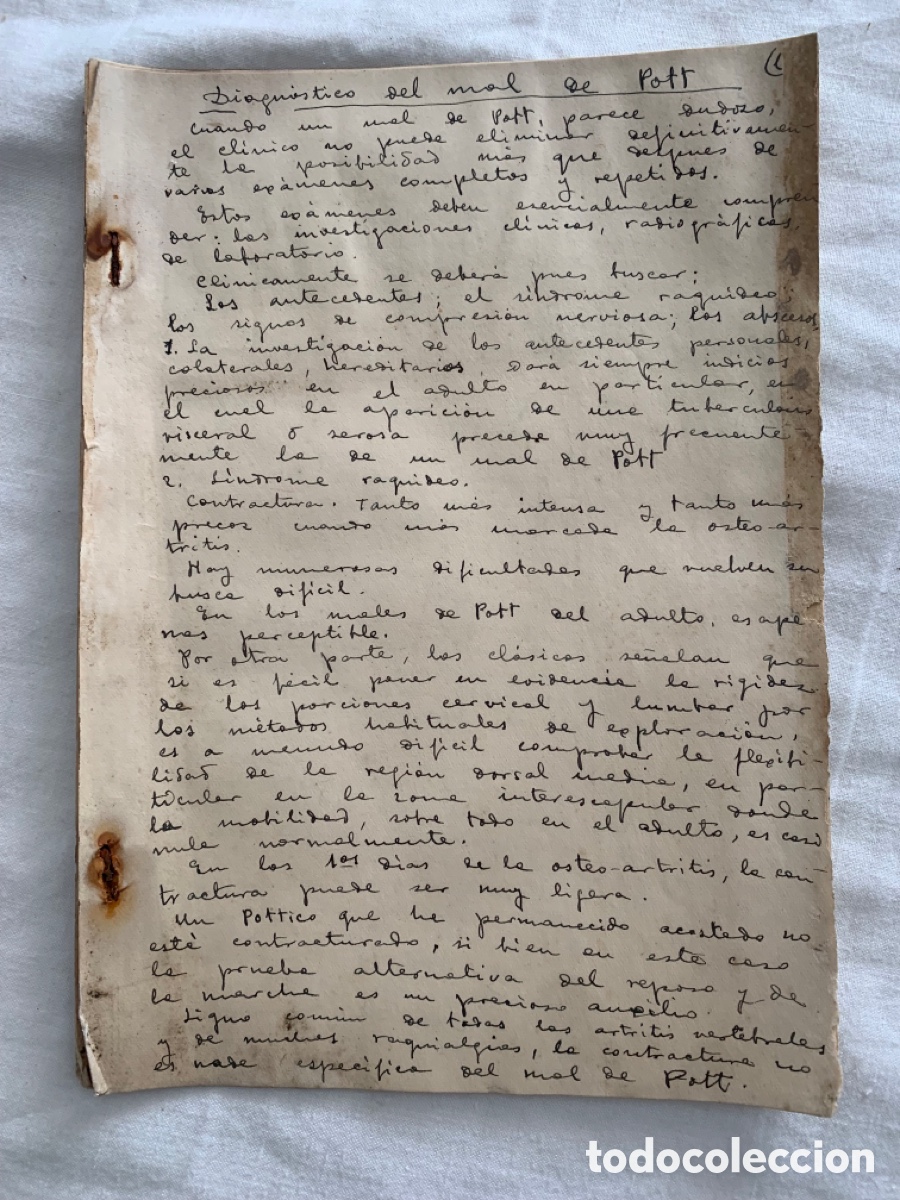 Diagnóstico del mal de Pott (1
Cuando un mal de Pott, parece dudoso,
el clínico no puede eliminar definitivamen-
te la posibilidad más que despues de
varios exámenes completos y repetidos.
Estos exámenes deben esencialmente compren
der: las investigaciones clínicas, radiográficas,
de laboratorio.
Clinicamente se deberá pues buscar:
Los antecedentes; el síndrome raquideo;
los signos de compresión nerviosa; los abscesos
1. La investigación de los antecedentes personales,
colaterales, hereditarios, dará siempre indicios
preciosos en el adulto en particular, en
el cual la aparición de una tuberculosis
visceral ó serosa precede muy frecuente-
mente la de un mal de Pott
2. Síndrome raquideo.
Contractura. Tanto más intensa y tanto más
precoz cuando más marcada la osteo-ar-
tritis.
Hay numerosas dificultades que vuelven su
busca difícil.
En los males de Pott del adulto, es ape
nas perceptible.
Por otra parte, los clásicos señalan que
si es fácil poner en evidencia la rigidez
de las porciones cervical y lumbar por
los métodos habituales de exploración,
es a menudo difícil comprobar la flexibi-
lidad de la región dorsal media, en par-
ticular en la zona interescapular donde
la mobilidad, sobre todo en el adulto, es casi
nula normalmente.
En los 1os días de la osteo-artritis, la con-
tractura puede ser muy ligera.
Un Pottico que ha permanecido acostado no
está contracturado, si bien en este caso
la prueba alternativa del reposo y de
la marcha es un precioso auxilio.
Signo común de todas las artritis vertebrales
y de muchas raquialgias, la contractura no
es nada específica del mal de Pott.
todocoleccion